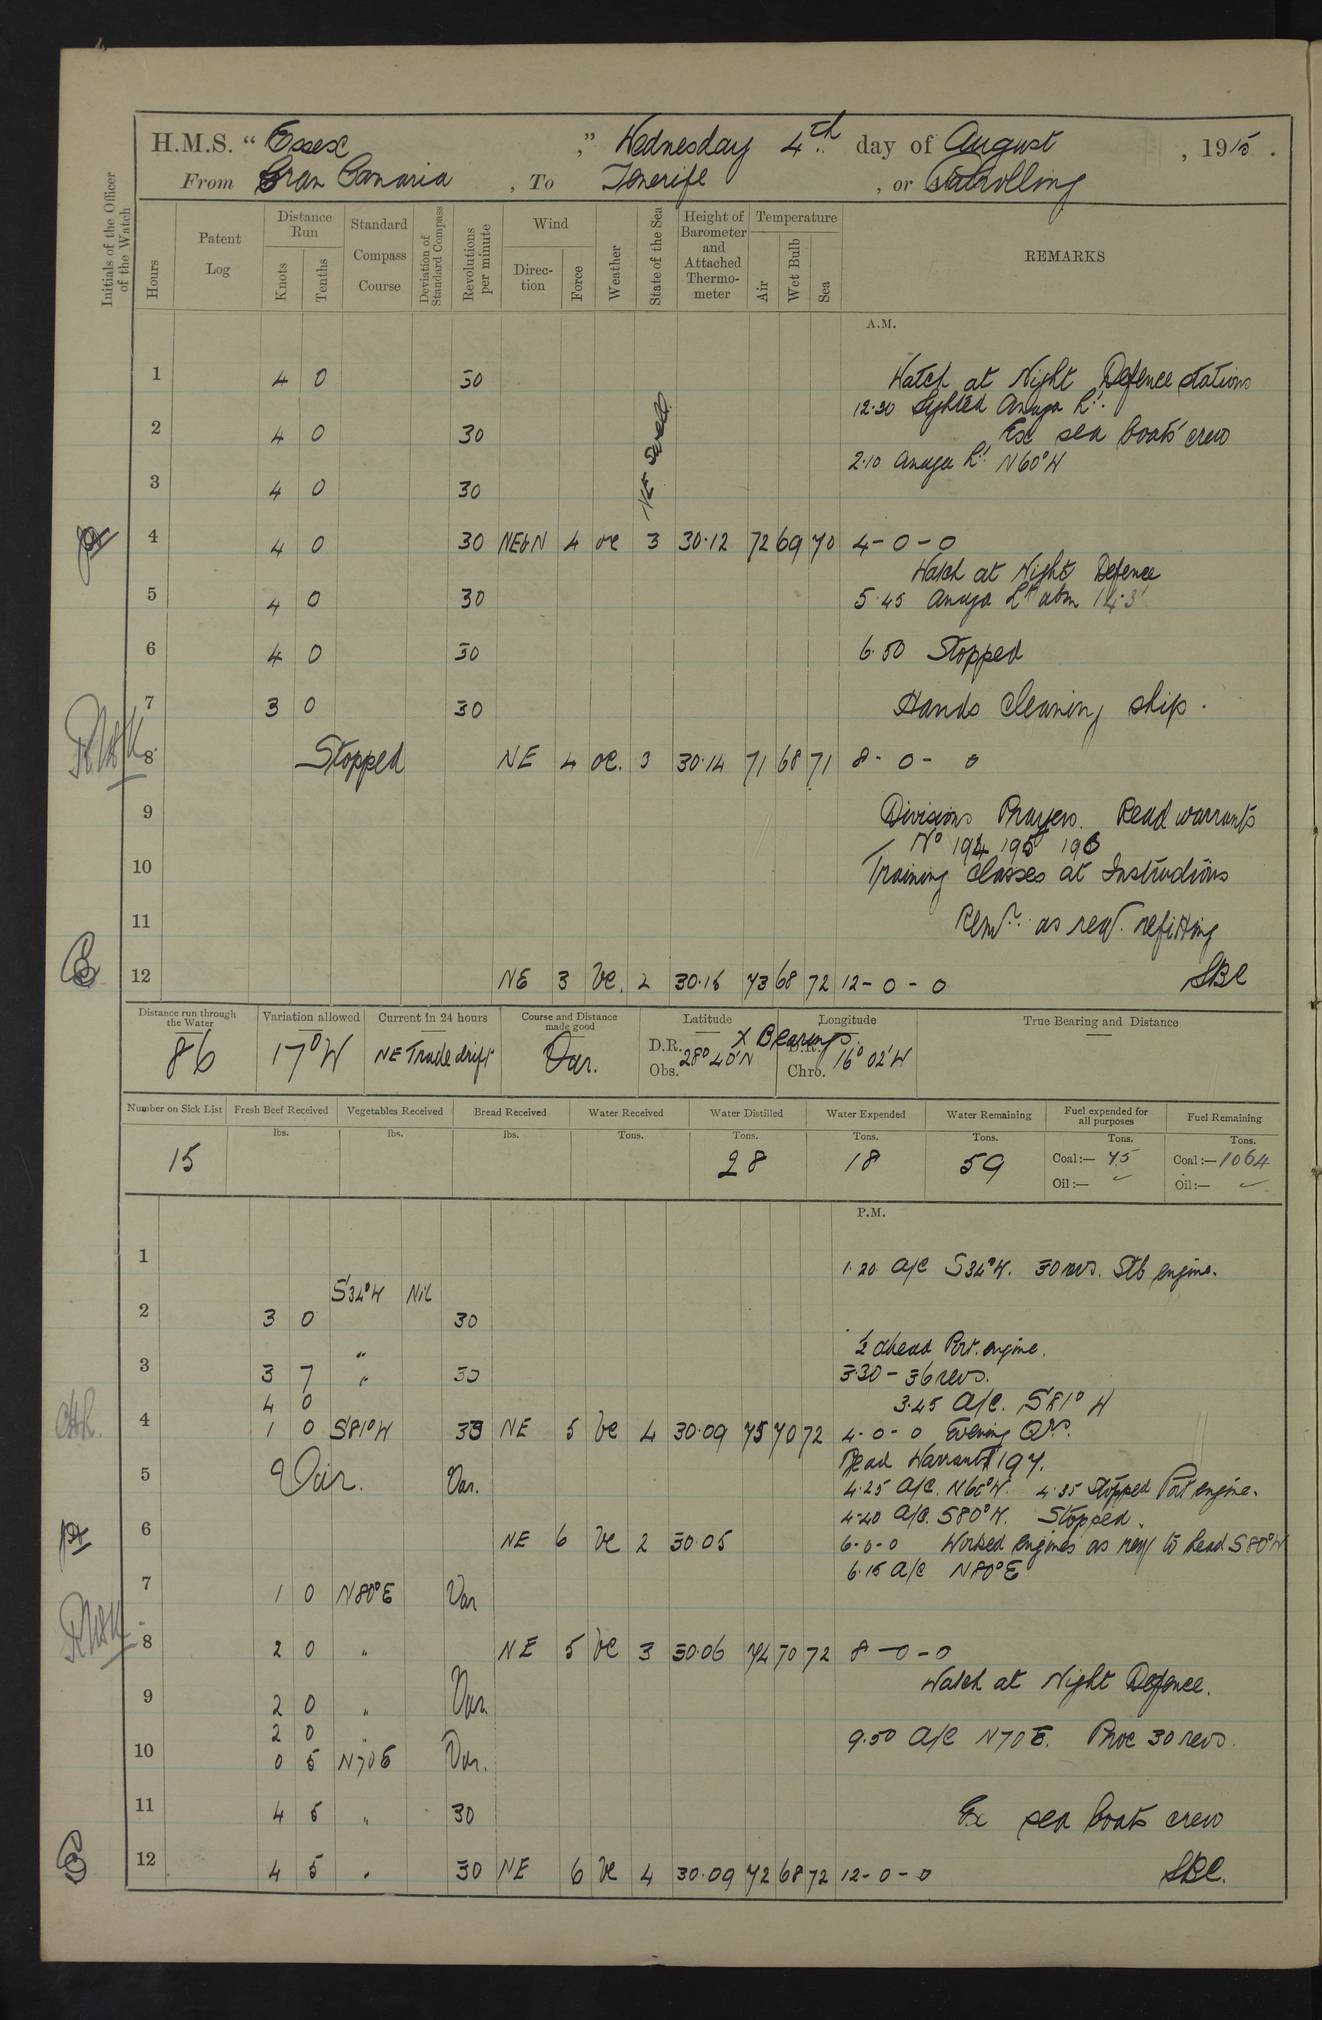 H.M.S. “ Essex ,” Wednesday 4th day of August , 1915 .
From Gran Canaria , To Tenerife , or Patrolling
Initials of the Officer of the Watch
Hours
Patent Log
Distance Run
Knots
Tenths
Standard Compass Course
Deviation of Standard Compass
Revolutions per minute
Wind
Direction
Force
Weather
State of the Sea
Height of Barometer and Attached Thermometer
Temperature
Air
Wet Bulb
Sea
REMARKS
A.M.
1 4 0 30 Watch at Night Defence stations
12.30 Sighted Anaga Lt.
2 4 0 30 Ex sea boats' crew
2.10 Anaga Lt. N60°W
3 4 0 30
Swell
4 4 0 30 NEbN 4 oc 3 30.12 72 69 70 4-0-0
Watch at Night Defence
5 4 0 30 5.45 Anaga Lt abm 14.3'
6 4 0 30 6.50 Stopped
7 3 0 30 Hands cleaning ship.
8 Stopped NE 4 oc. 3 30.14 71 68 71 8-0-0
9 Divisions Prayers. Read warrants
No 194 195 196
10 Training classes at Instructions
11 Remr. as req. refitting
12 NE 3 bc. 2 30.15 73 68 72 12-0-0 SBC
Distance run through the Water
86
Variation allowed
17°W
Current in 24 hours
NE Trade drift
Course and Distance made good
Var.
Latitude
D.R.
Obs. 28° 40'N
X Bearings.
Longitude
D.R.
Chro. 16° 02'W
True Bearing and Distance
Number on Sick List
15
Fresh Beef Received
lbs.
Vegetables Received
lbs.
Bread Received
lbs.
Water Received
Tons.
Water Distilled
Tons.
28
Water Expended
Tons.
18
Water Remaining
Tons.
59
Fuel expended for all purposes
Tons.
Coal:— 45
Oil:— ✓
Fuel Remaining
Tons.
Coal:— 1064
Oil:— ✓
P.M.
1 1.20 A/C S34°W. 30 revs. Stb engine.
S34°W Nil
2 3 0 30
" ½ ahead Port. engine.
3 3 7 " 30 3.30 - 36 revs.
4 0 3.45 A/C. S81°W
4 1 0 S81°W 33 NE 5 bc 4 30.09 75 70 72 4-0-0 Evening Qrs.
Read Warrant 197.
5 Var. Var. 4.25 A/C. N65°W. 4.35 Stopped Port engine.
4.40 A/C. S80°W. Stopped.
6 NE 6 bc 2 30.05 6-0-0 Worked engines as nery to head S80°W
6.15 A/C N80°E
7 1 0 N80°E Var
8 2 0 " NE 5 bc 3 30.06 74 70 72 8-0-0
Watch at Night Defence.
9 2 0 " Var.
2 0 " 9.50 A/C N70E. Proc 30 revs.
10 0 5 N70E Var.
11 4 5 " 30 Ex sea boats crew
12 4 5 " 30 NE 6 bc 4 30.09 72 68 72 12-0-0 SBC.